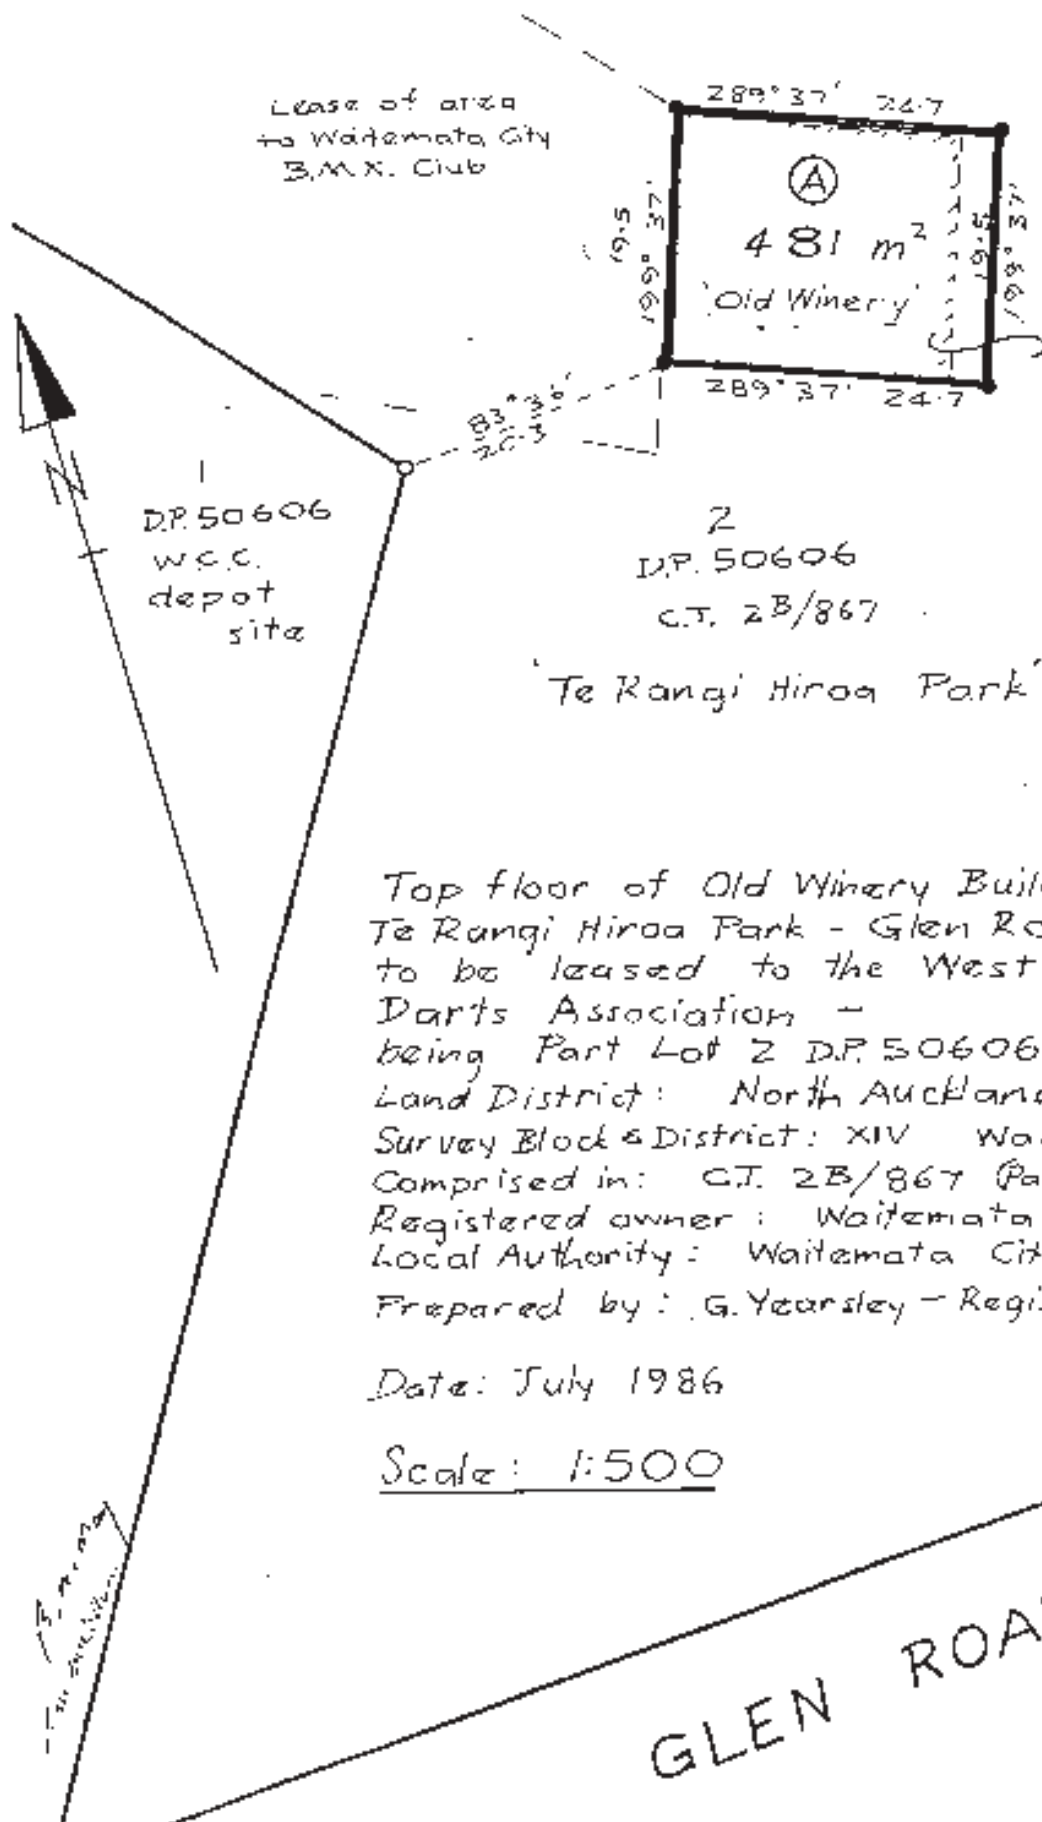 Lease of area
to Waitemata City
B.M.X. Club
289° 37' 24.7
A
481 m²
'Old Winery'
19.5
199° 37'
19.5
199° 37'
289° 37' 24.7
83° 36'
20.3
N
1
D.P. 50606
W.C.C.
depot
site
2
D.P. 50606
C.T. 2B/867
'Te Rangi Hiroa Park'
Top floor of Old Winery Buil
Te Rangi Hiroa Park - Glen Ro
to be leased to the West
Darts Association -
being Part Lot 2 D.P. 50606
Land District: North Auckland
Survey Block & District: XIV Wa
Comprised in: C.T. 2B/867 (Pa
Registered owner: Waitemata
Local Authority: Waitemata Cit
Prepared by: G. Yearsley - Regis
Date: July 1986
Scale: 1:500
GLEN ROA